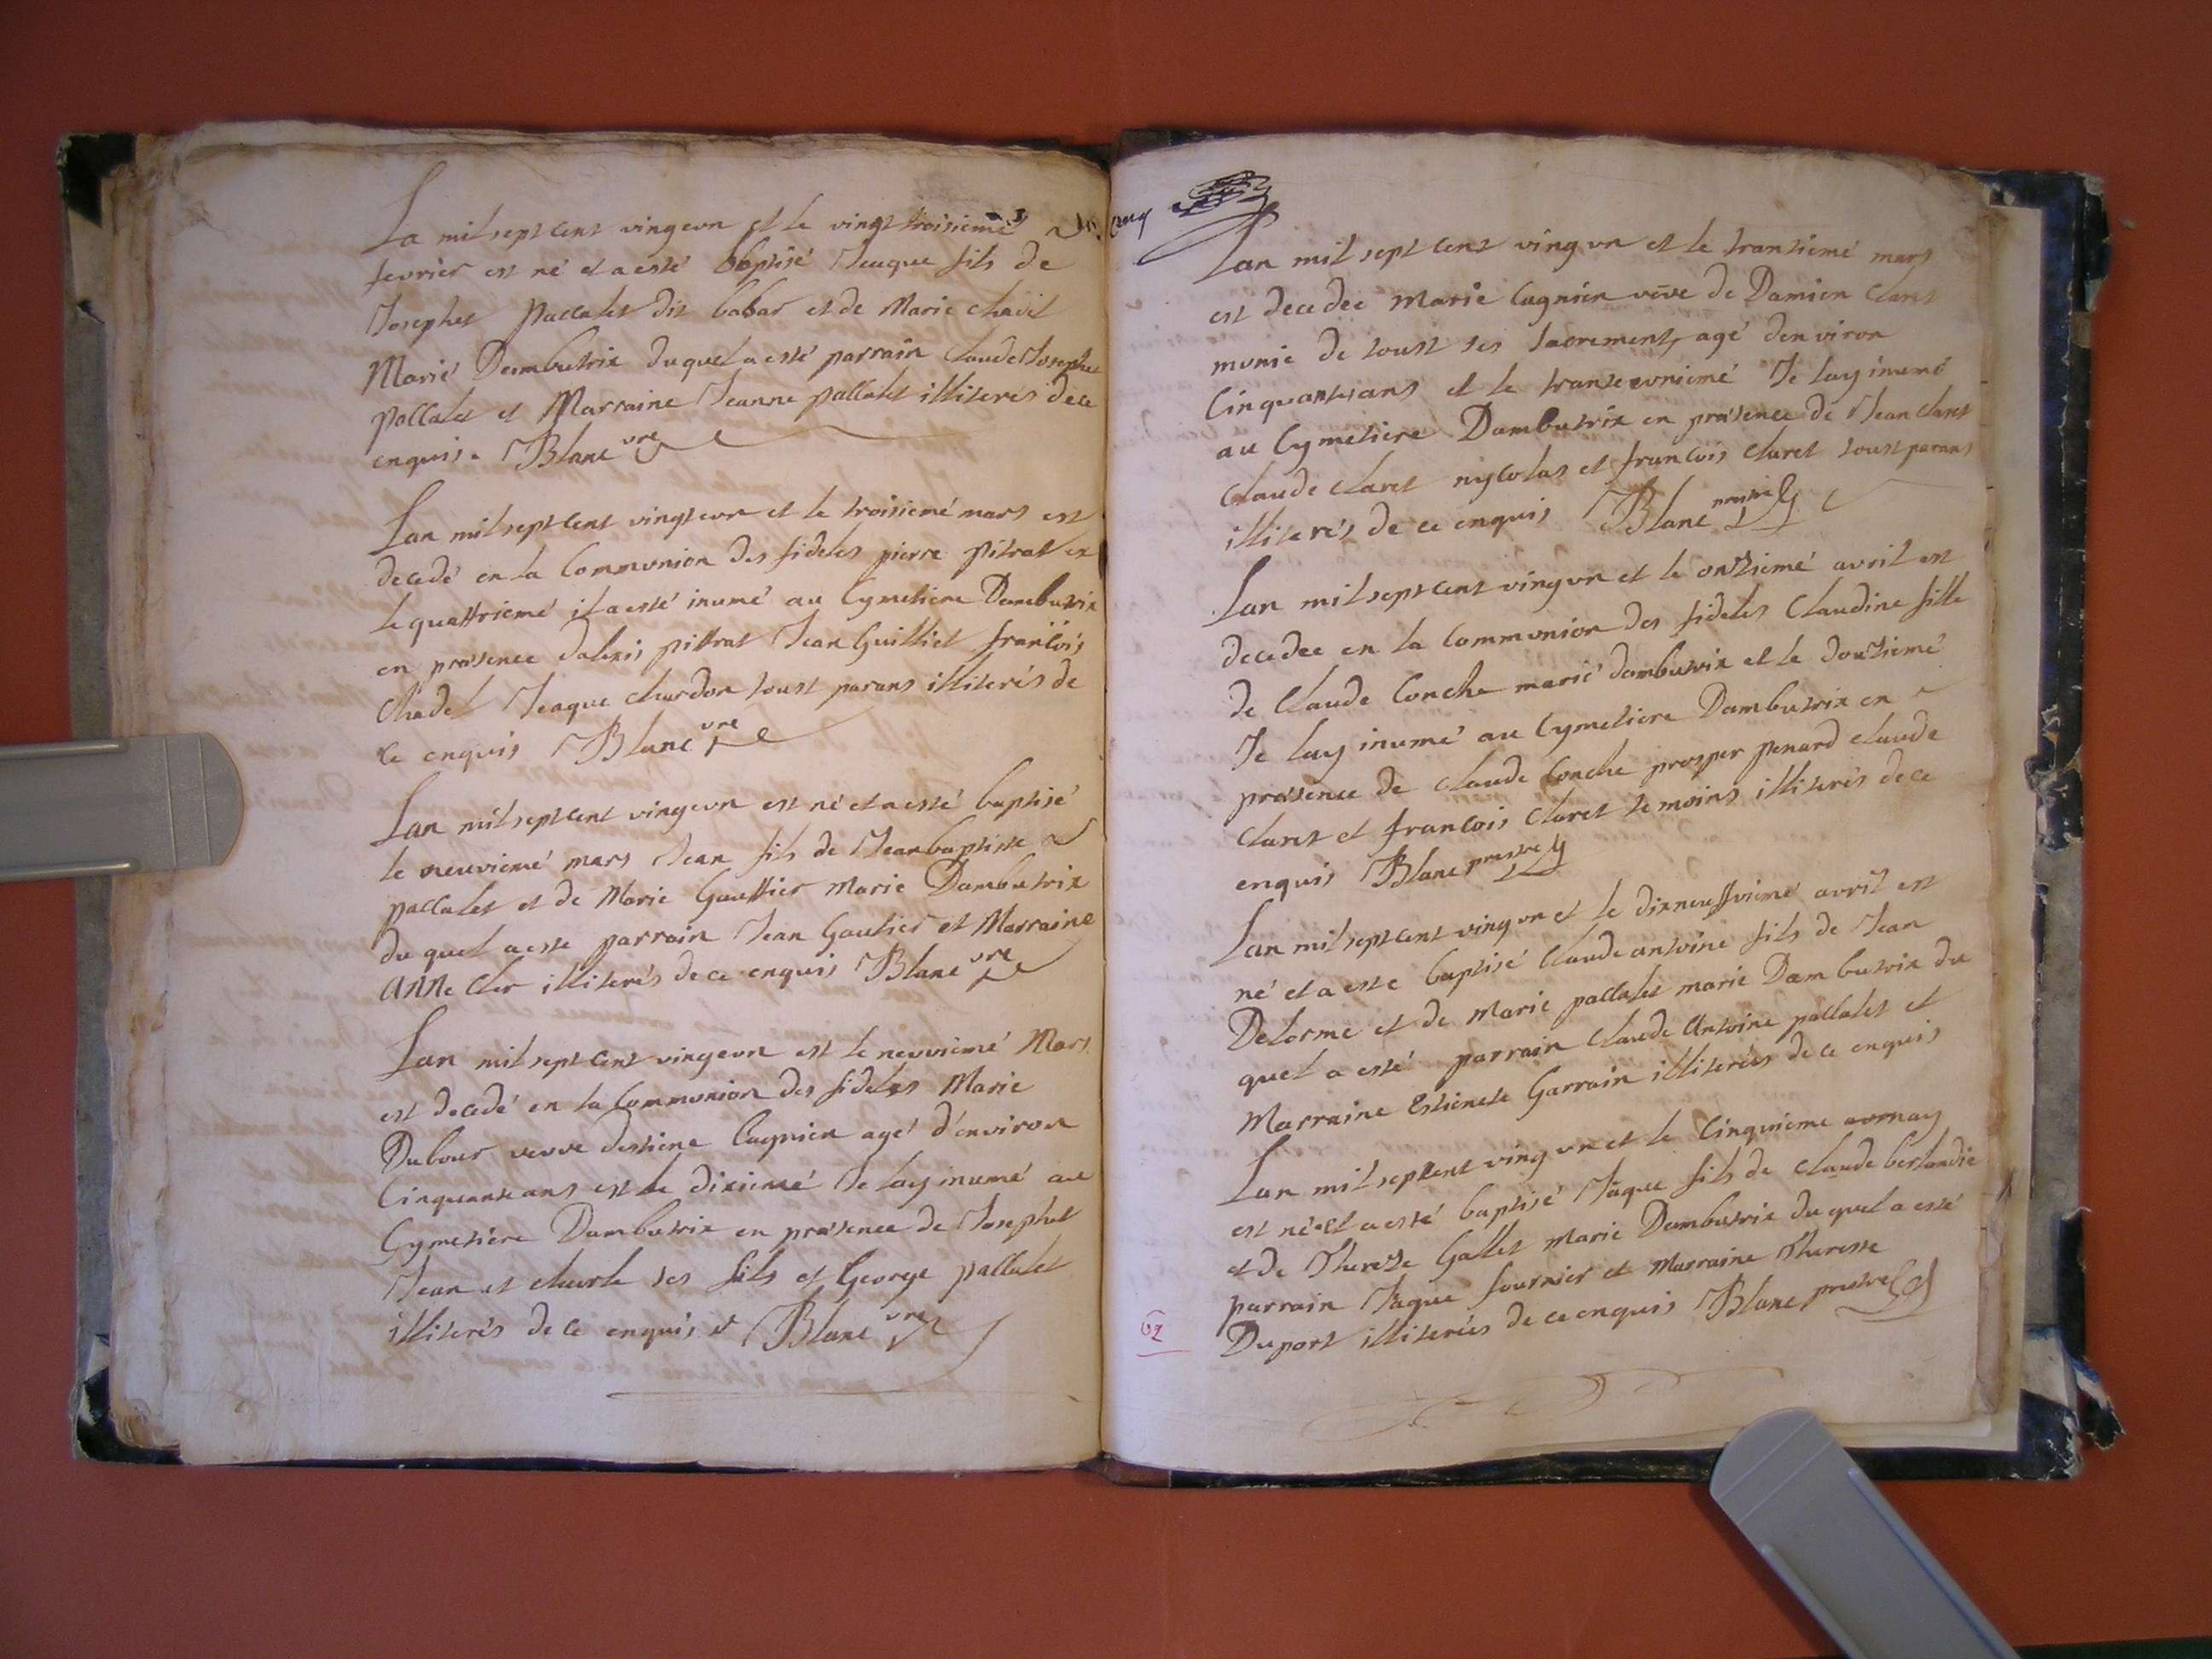 La mil sept cent vingeun et le vingt troisieme
fevrier est né et a esté baptisé Jeaque fils de
Josephet Pallatet dit babar et de Marie chadel
Marié Dambutrix duquel a esté parrain Claude Josephet
Pallatet et Marraine Jeanne Pallatet illiterés de ce
enquis. Blanc vre
Lan mil sept cent vingt eun et le troisiemé mars est
decedé en la Communion des fideles pierre Pitrat et
le quattriemé il a esté inumé au Cymetiere Dambutrix
en præsence dalexis pittrat Jean Guilliet francois
Chadel Jeaque chardon toust parans illiterés de
ce enquis Blanc vre
Lan mil sept cent vingeun est né et a esté baptisé
le neuviemé mars Jean fils de Jean baptiste
pallatet et de Marie Gauttier Marie Dambutrix
du quel a este parrain Jean Gautier et Marraine
Anne Cler illiterés de ce enquis Blanc vre
Lan mil sept cent vingeun est le neuviemé Mars
est decedé en la Communion des fideles Marie
Dubour veuve destiene Cagnien agé d'environ
Cinquante ans est le dixiemé Je lay inumé au
Cymetiere Dambutrix en præsence de Josephet
Jean et charle ses fils et George pallatet
illiterés de ce enquis Blanc vre
Lan mil sept cent ving un et le trantiemé mars
est decedée Marie Cagnien veve de Damien Claret
monie de toust ses sacrements agé denviron
Cinquante ans et le trante eoniemé Je lay inumé
au Cymetiere Dambutrix en præsence de Jean Claret
Claude Claret nycolas et francois Claret toust parans
illiterés de ce enquis Blanc prestre
Lan mil sept cent ving un et le ontziemé avril est
decedée en la Communion des fideles Claudine fille
de Claude Conche marié dambutrix et le doutziemé
Je lay inumé au Cymetiere Dambutrix en
præsence de Claude Conche prosper penard claude
Claret et francois Claret temoins illiterés de ce
enquis Blanc prestre
Lan mil sept cent ving un et le dixneuffviemé avril est
né et a este baptisé Claude antoine fils de Jean
Delorme et de Marie pallatet marié Dambutrix du
quel a esté parrain Claude Antoine pallatet et
Marraine Estienete Garrain illiterées de ce enquis
Lan mil sept cent ving un et le Cinquieme may
est né et a esté baptisé Jaque fils de Claude berlandié
et de Theretze Gallet Marie Dambutrix du quel a esté
parrain Jaque fournier et Marraine Theresse
Duport illiterées de ce enquis Blanc prestre
62